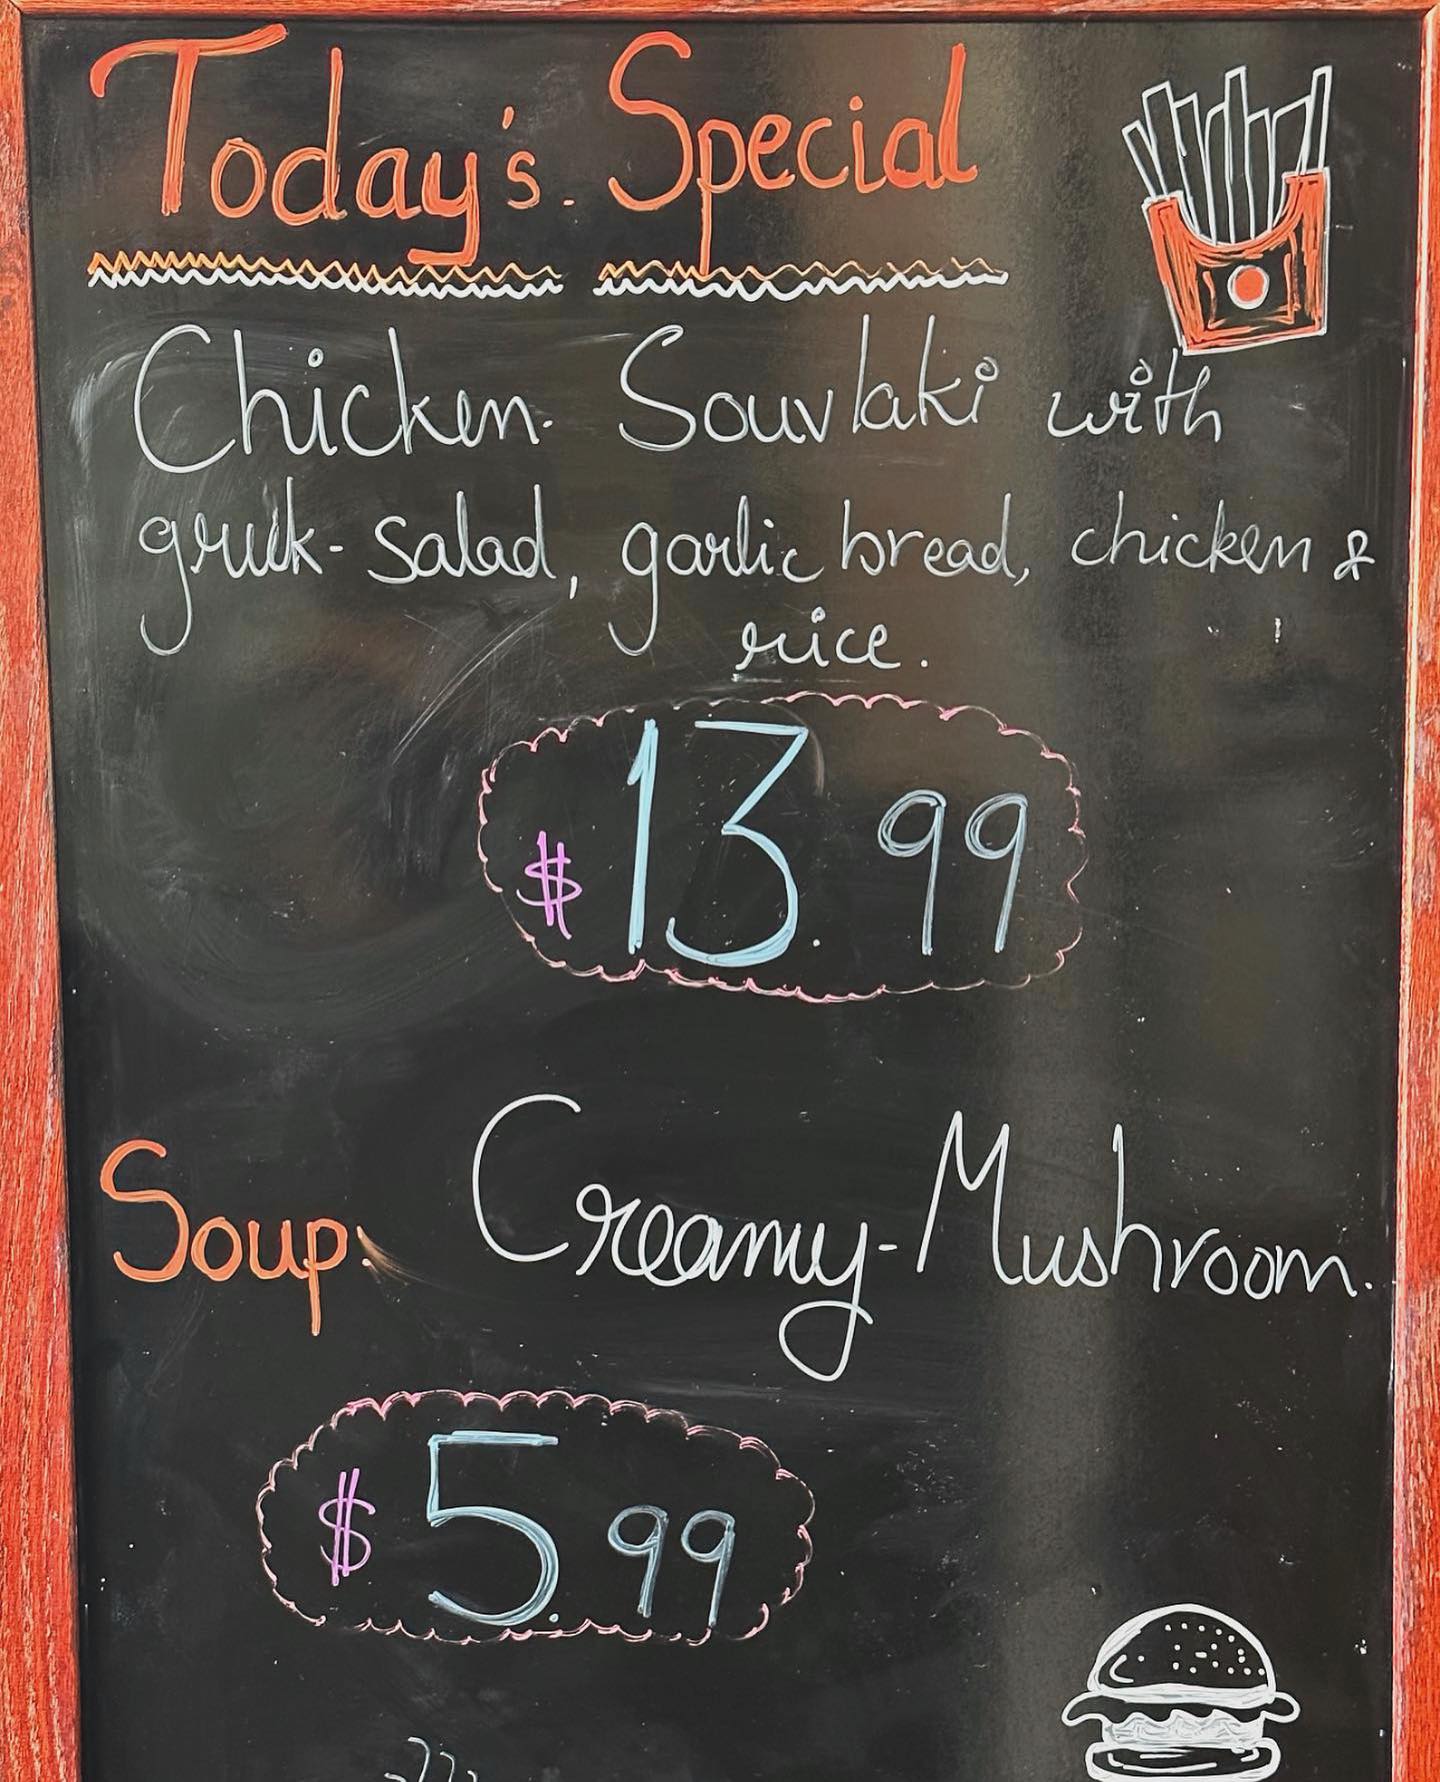 Today's. Special
Chicken. Souvlaki with
greek-salad, garlic bread, chicken &
rice.
$ 13.99
Soup: Creamy-Mushroom.
$ 5.99